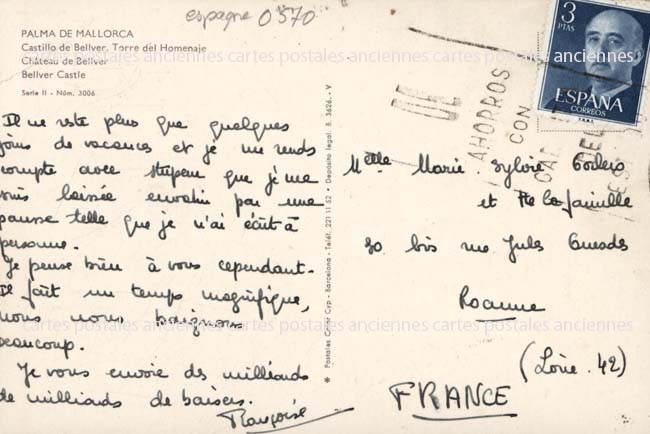 espagne 0570
PALMA DE MALLORCA
Castillo de Bellver. Torre del Homenaje
Château de Bellver
Bellver Castle
Serie II - Núm. 3006
Il ne reste plus que quelques
jours de vacances et je me rends
compte avec stupeur que je me
suis laissée envahir par une
paresse telle que je n'ai écrit à
personne.
Je pense bien à vous cependant.
Il fait un temps magnifique,
nous nous baignons
beaucoup.
Je vous envoie des milliards
de milliards de baisers.
Françoise
* Postales Color Cyp - Barcelona - Teléf. 221 11 52 - Depósito legal. B. 3626. - V
3
PTAS
ESPAÑA
CORREOS
AHORROS
CON
Melle Marie Sylvie
et la famille
30 bis rue Jules Guesde
Roanne
(Loire . 42)
FRANCE
cartes postales anciennes cartes postales anciennes cartes postales anciennes
cartes postales anciennes cartes postales anciennes cartes postales anciennes